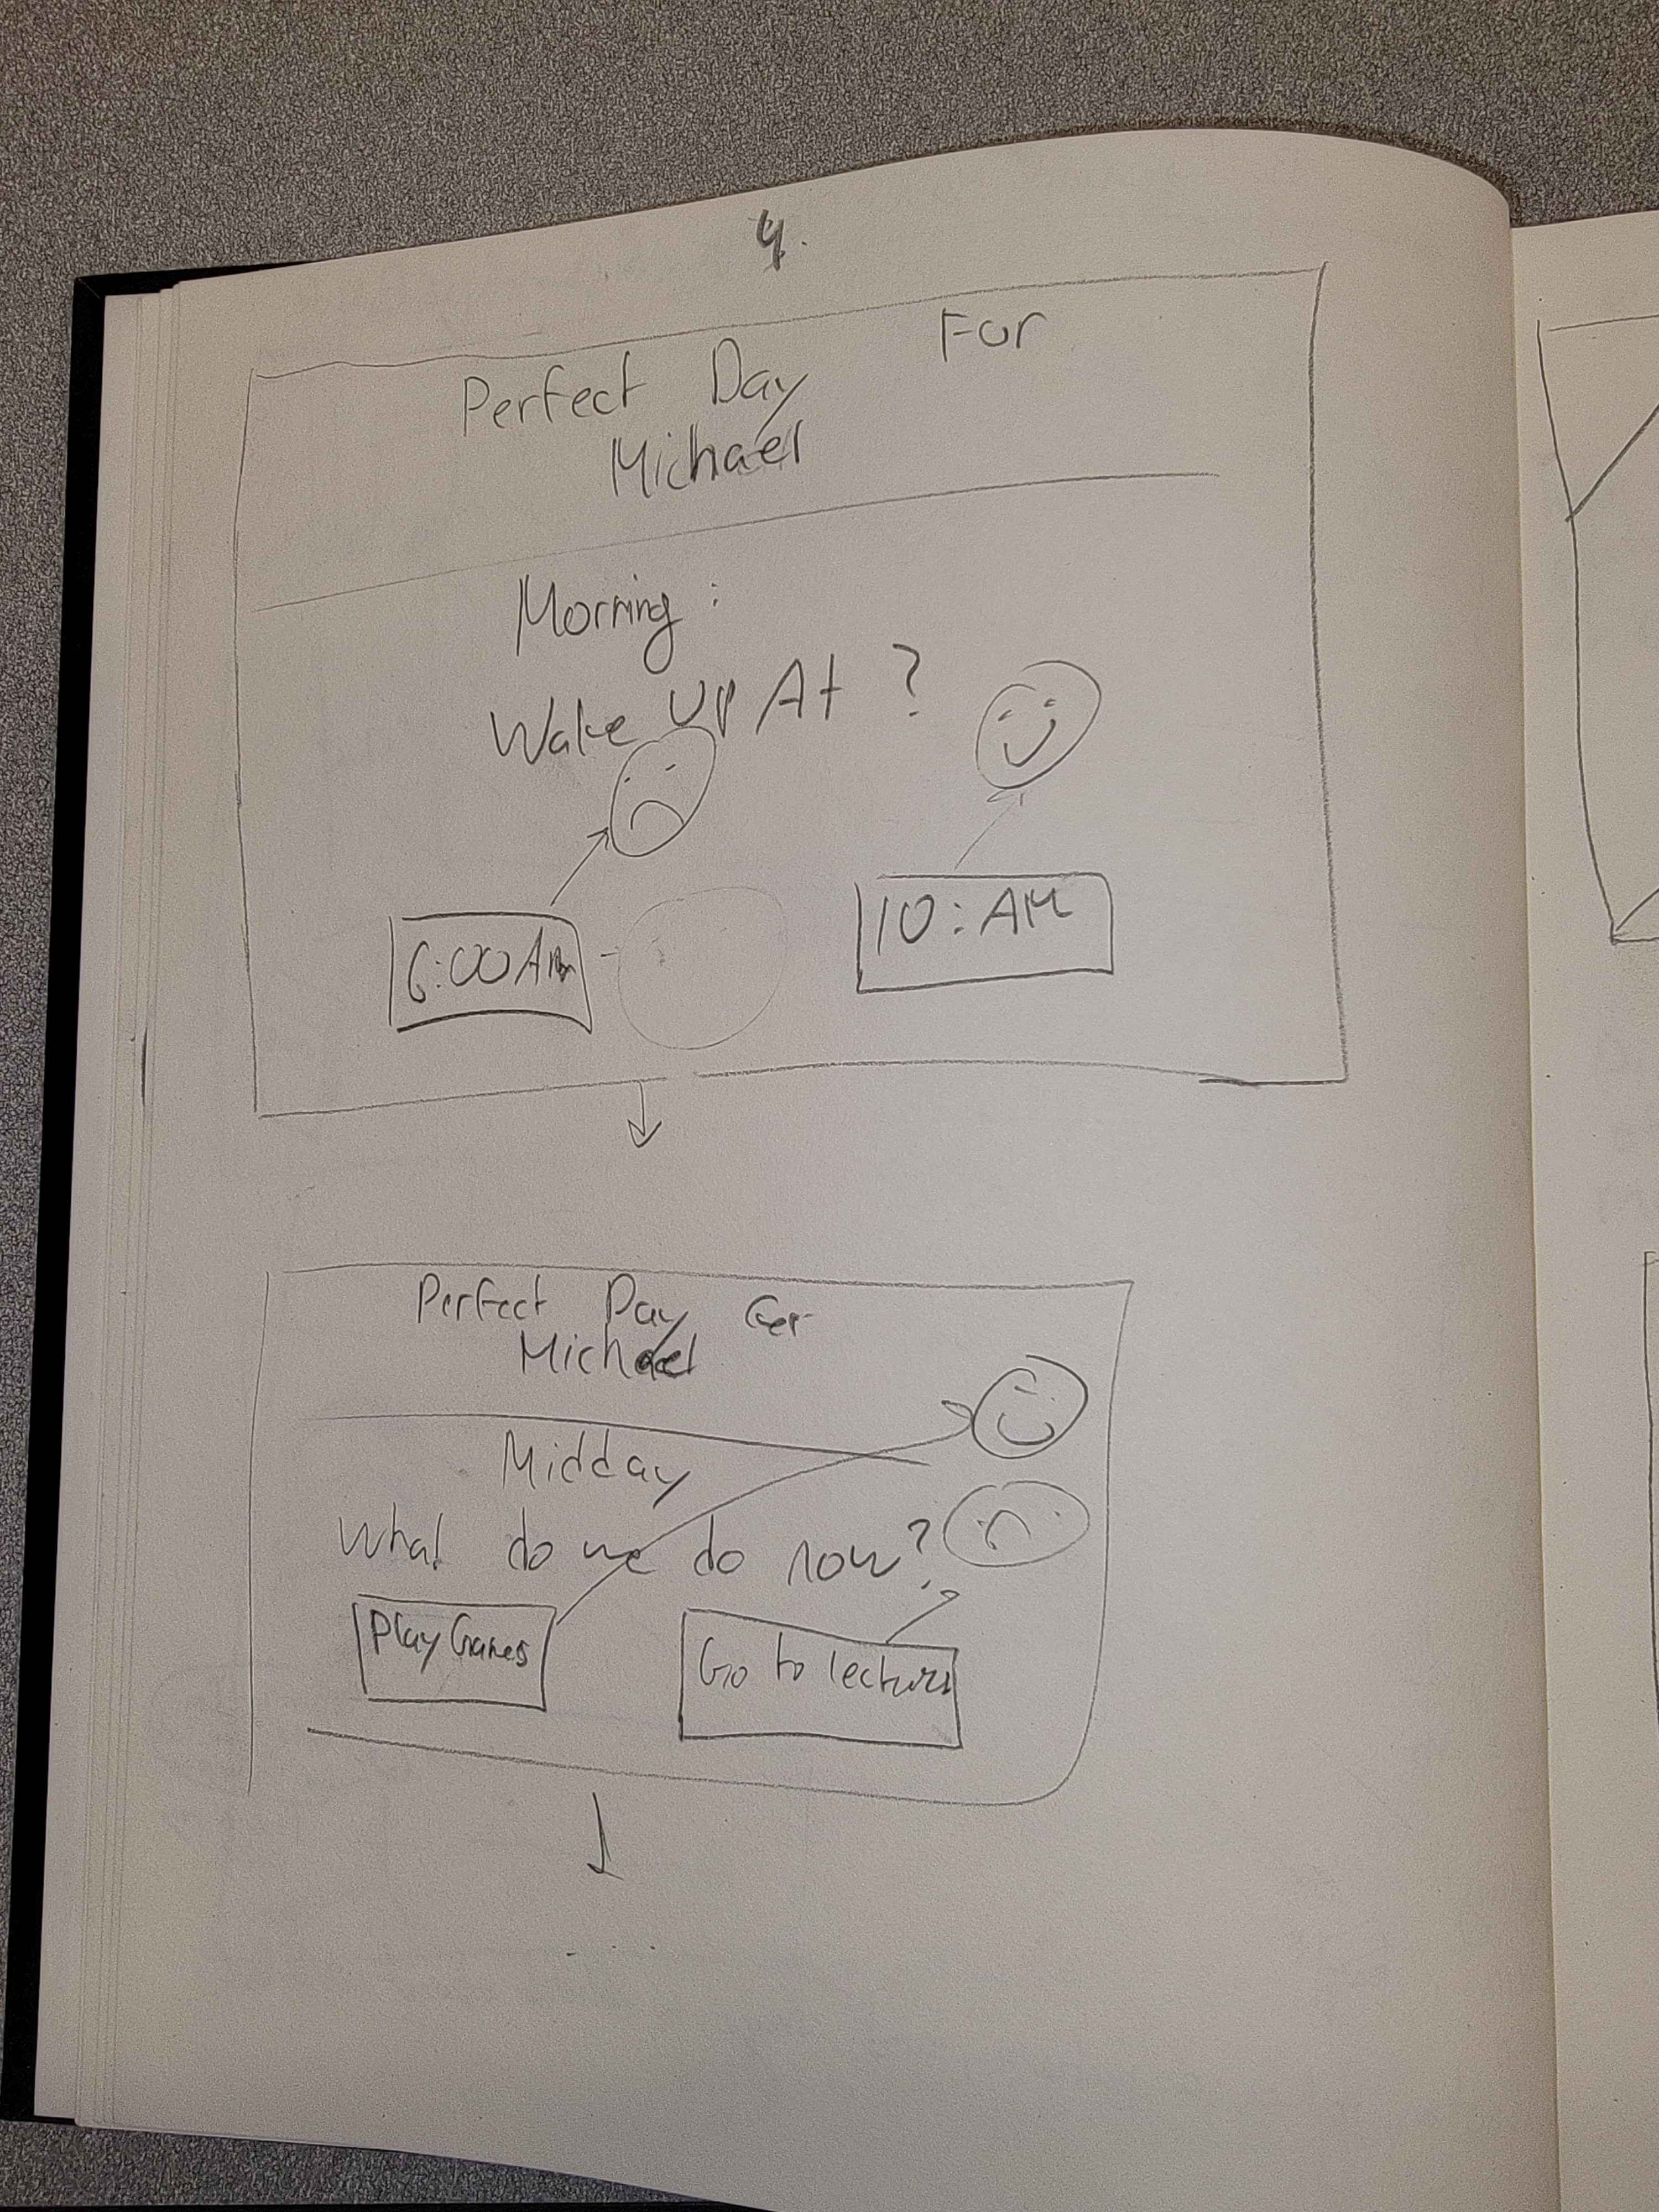 4.
Perfect Day For
Michael
Morning :
Wake Up At ?
6:00 AM
10 : AM
Perfect Day For
Michael
Midday
What do we do now?
Play Games
Go to lectures